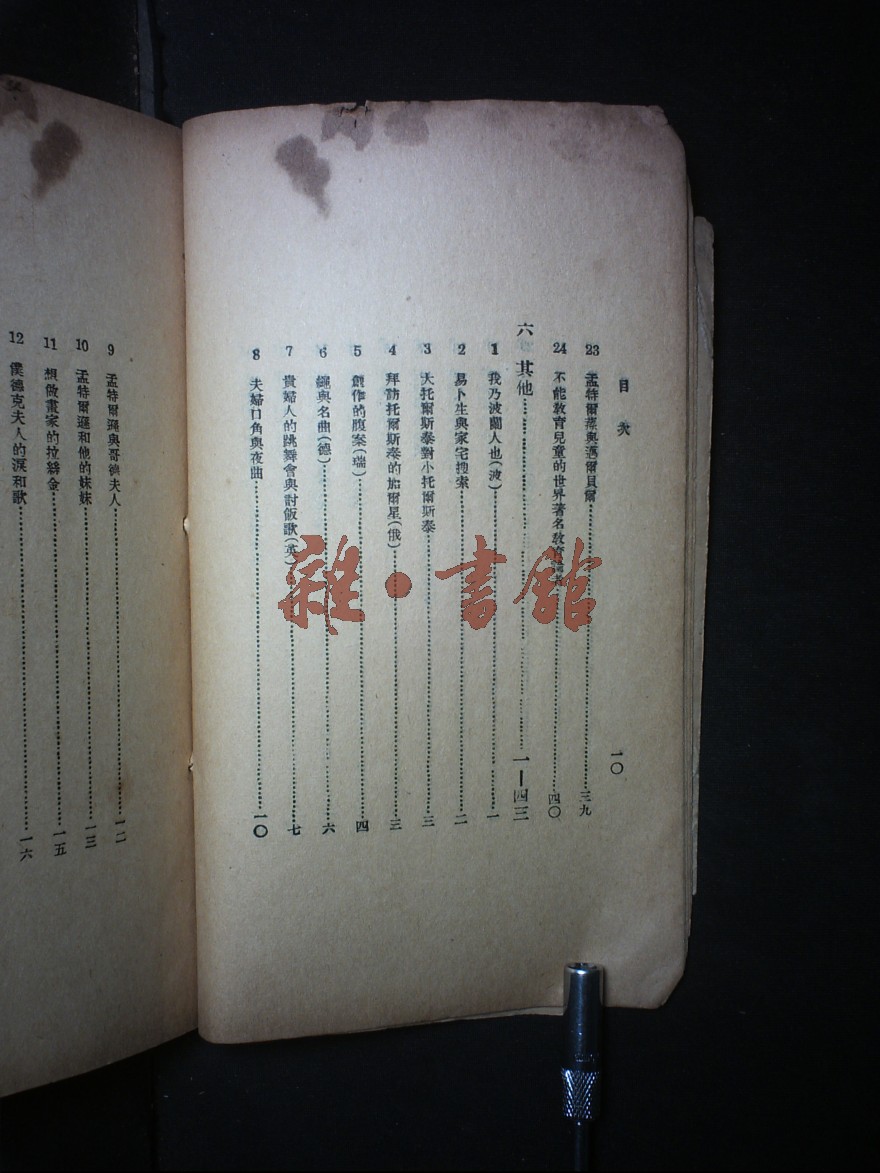 目次
一〇
23 孟特爾遜與邁爾貝爾……三九
24 不能教育兒童的世界著名教育……四〇
六 其他……一—四三
1 我乃波蘭人也(波)……一
2 易卜生與家宅搜索……二
3 大托爾斯泰對小托爾斯泰……三
4 拜訪托爾斯泰的加爾星(俄)……三
5 創作的腹案(瑞)……四
6 繩與名曲(德)……六
7 貴婦人的跳舞會與討飯歌(英)……七
8 夫婦口角與夜曲……一〇
9 孟特爾遜與哥德夫人……一二
10 孟特爾遜和他的妹妹……一三
11 想做畫家的拉繆金……一五
12 僕德克夫人的淚和歌……一六
雜·書館